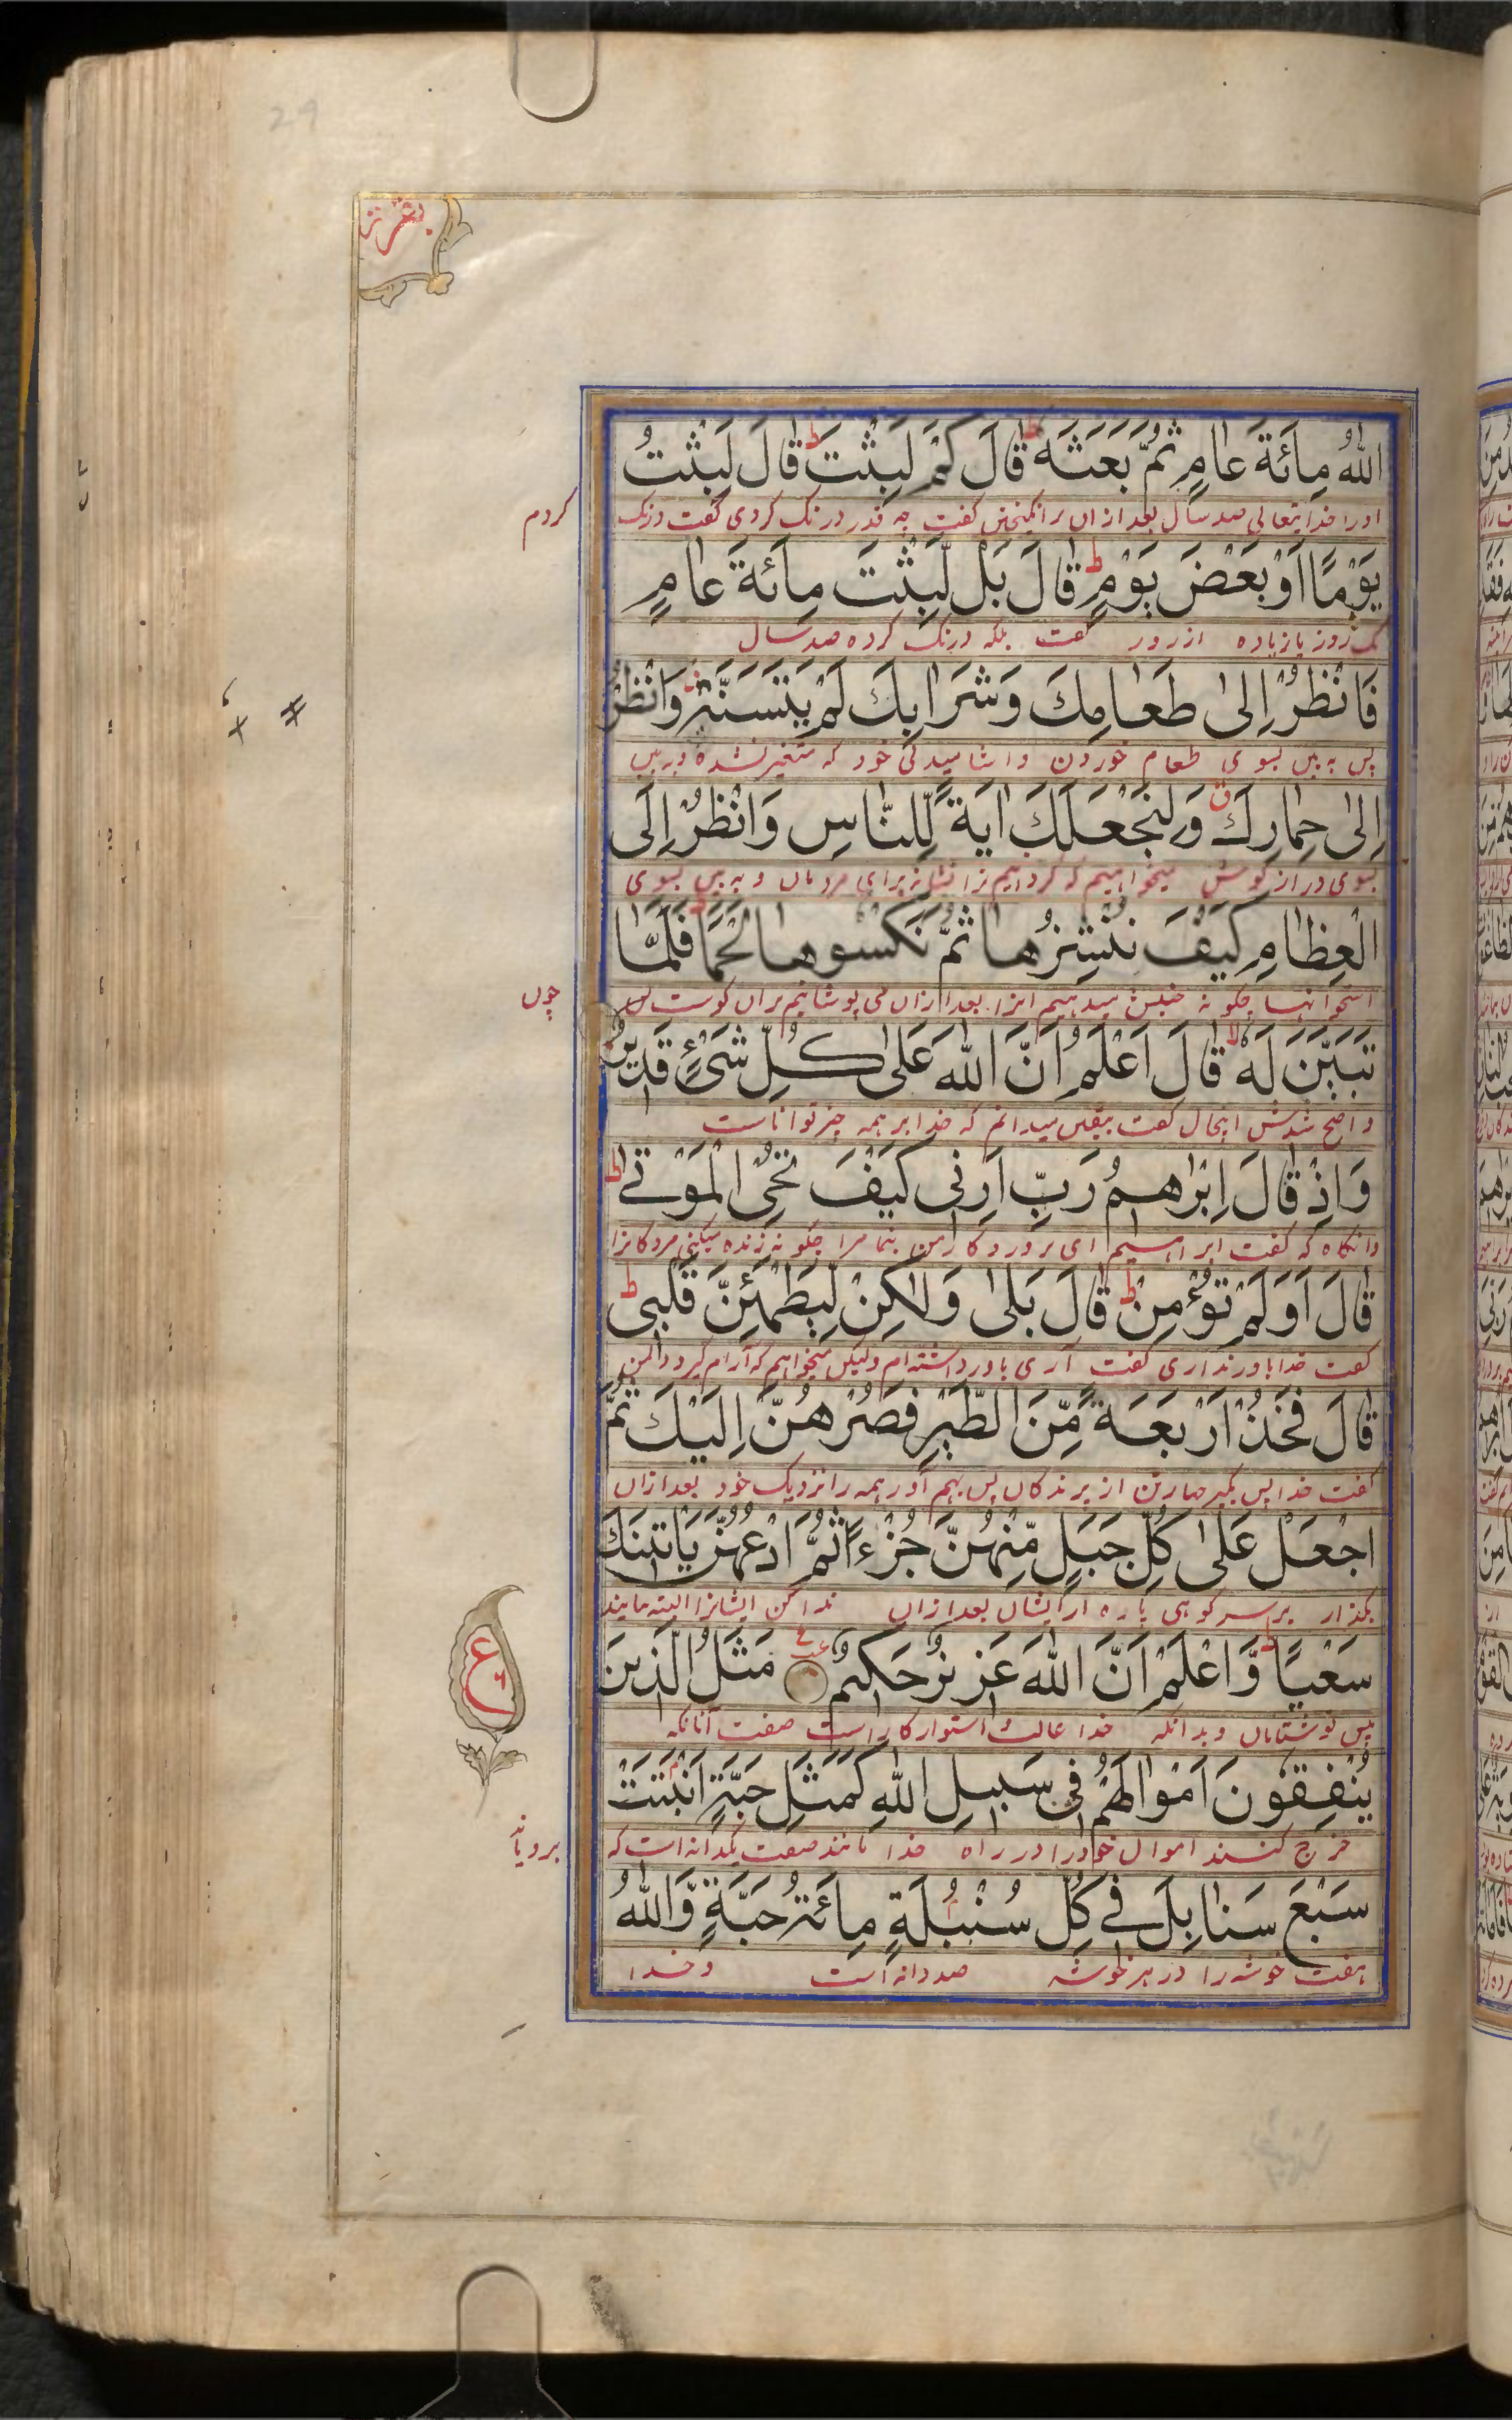 29
اللهُ مِائَةَ عَامٍ ثُمَّ بَعَثَهٗ ط قَالَ كَمْ لَبِثْتَ ط قَالَ لَبِثْتُ
اورا خدایتعالی صد سال بعد ازاں برانگیختش گفت چه قدر درنگ کردی گفت درنگ
کردم
يَوْمًا اَوْ بَعْضَ يَوْمٍ ط قَالَ بَلْ لَّبِثْتَ مِائَةَ عَامٍ
یک روز یا زیاده از روز گفت بلکه درنگ کرده صد سال
فَانْظُرْ اِلٰى طَعَامِكَ وَشَرَابِكَ لَمْ يَتَسَنَّهْ وَانْظُرْ
پس به بیں بسوی طعام خوردن و اشامیدنی خود که متغیر نشده و به بیں
اِلٰى حِمَارِكَ ق وَلِنَجْعَلَكَ اٰيَةً لِّلنَّاسِ وَانْظُرْ اِلَى
بسوی دراز گوش میخواهیم که گردانیم ترا نشانه برای مردماں و به بیں بسوی
الْعِظَامِ كَيْفَ نُنْشِزُهَا ثُمَّ نَكْسُوهَا لَحْمًا ط فَلَمَّا
استخوانها چگونه جنبش میدهیم انرا بعد ازاں می پوشانیم براں گوشت پس
چوں
تَبَيَّنَ لَهٗ لا قَالَ اَعْلَمُ اَنَّ اللهَ عَلٰى كُلِّ شَىْءٍ قَدِيْرٌ
واضح شدش اینحال گفت بیقیں میدانم که خدا بر همه چیز تواناست
وَاِذْ قَالَ اِبْرٰهٖمُ رَبِّ اَرِنِى كَيْفَ تُحْىِ الْمَوْتٰے ط
وانگاه که گفت ابراهیم ای پروردگار من بنما مرا چگونه زنده میکنی مردگانرا
قَالَ اَوَلَمْ تُؤْمِنْ ط قَالَ بَلٰى وَلٰكِنْ لِّيَطْمَئِنَّ قَلْبِى ط
گفت خدا باور نداری گفت آری باور داشته ام ولیکن میخواهم که آرام گیرد دل من
قَالَ فَخُذْ اَرْبَعَةً مِّنَ الطَّيْرِ فَصُرْهُنَّ اِلَيْكَ ثُمَّ
گفت خدا پس بگیر چهار تن از پرندگاں پس بهم آور همه را نزدیک خود بعد ازاں
اجْعَلْ عَلٰى كُلِّ جَبَلٍ مِّنْهُنَّ جُزْءًا ثُمَّ ادْعُهُنَّ يَاْتِيْنَكَ
بگذار بر سر کوهی پاره از ایشاں بعد ازاں ندا کن ایشانرا البته بیایند
سَعْيًا ط وَّاعْلَمْ اَنَّ اللهَ عَزِيْزٌ حَكِيْمٌ ع مَثَلُ الَّذِيْنَ
پیش تو شتاباں و بدانکه خدا غالب و استوار کار است صفت آنانکه
ع
يُنْفِقُوْنَ اَمْوَالَهُمْ فِى سَبِيْلِ اللهِ كَمَثَلِ حَبَّةٍ اَنْبَتَتْ
خرج کنند اموال خود را در راه خدا مانند صفت یکدانه است که
برویاند
سَبْعَ سَنَابِلَ فِے كُلِّ سُنْبُلَةٍ مِائَةُ حَبَّةٍ وَّاللهُ
هفت خوشه را در هر خوشه صد دانه است و خدا